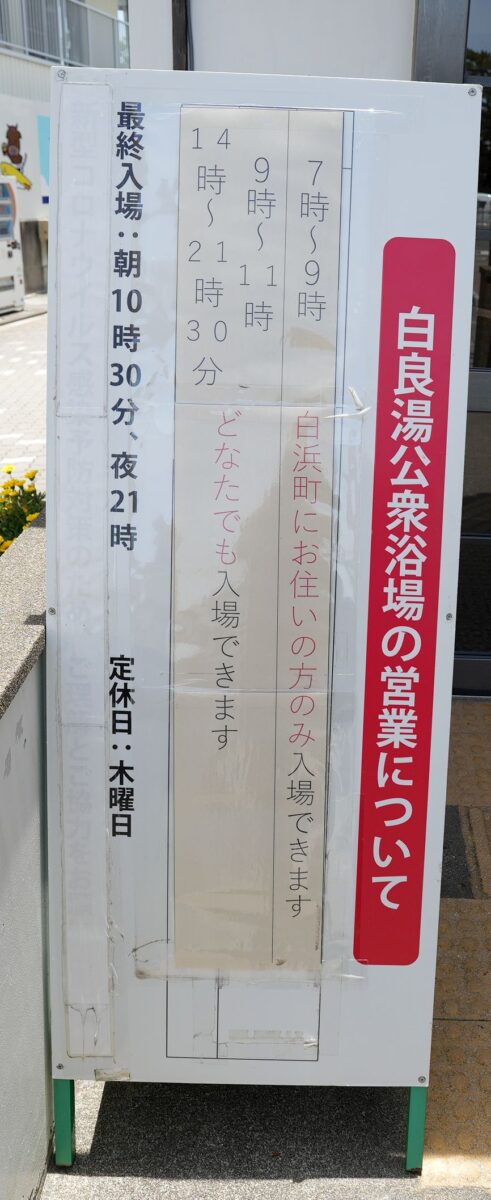 白良湯公衆浴場の営業について
7時～9時 白浜町にお住いの方のみ入場できます
9時～11時
14時～21時30分
どなたでも入場できます
最終入場：朝10時30分、夜21時 定休日：木曜日